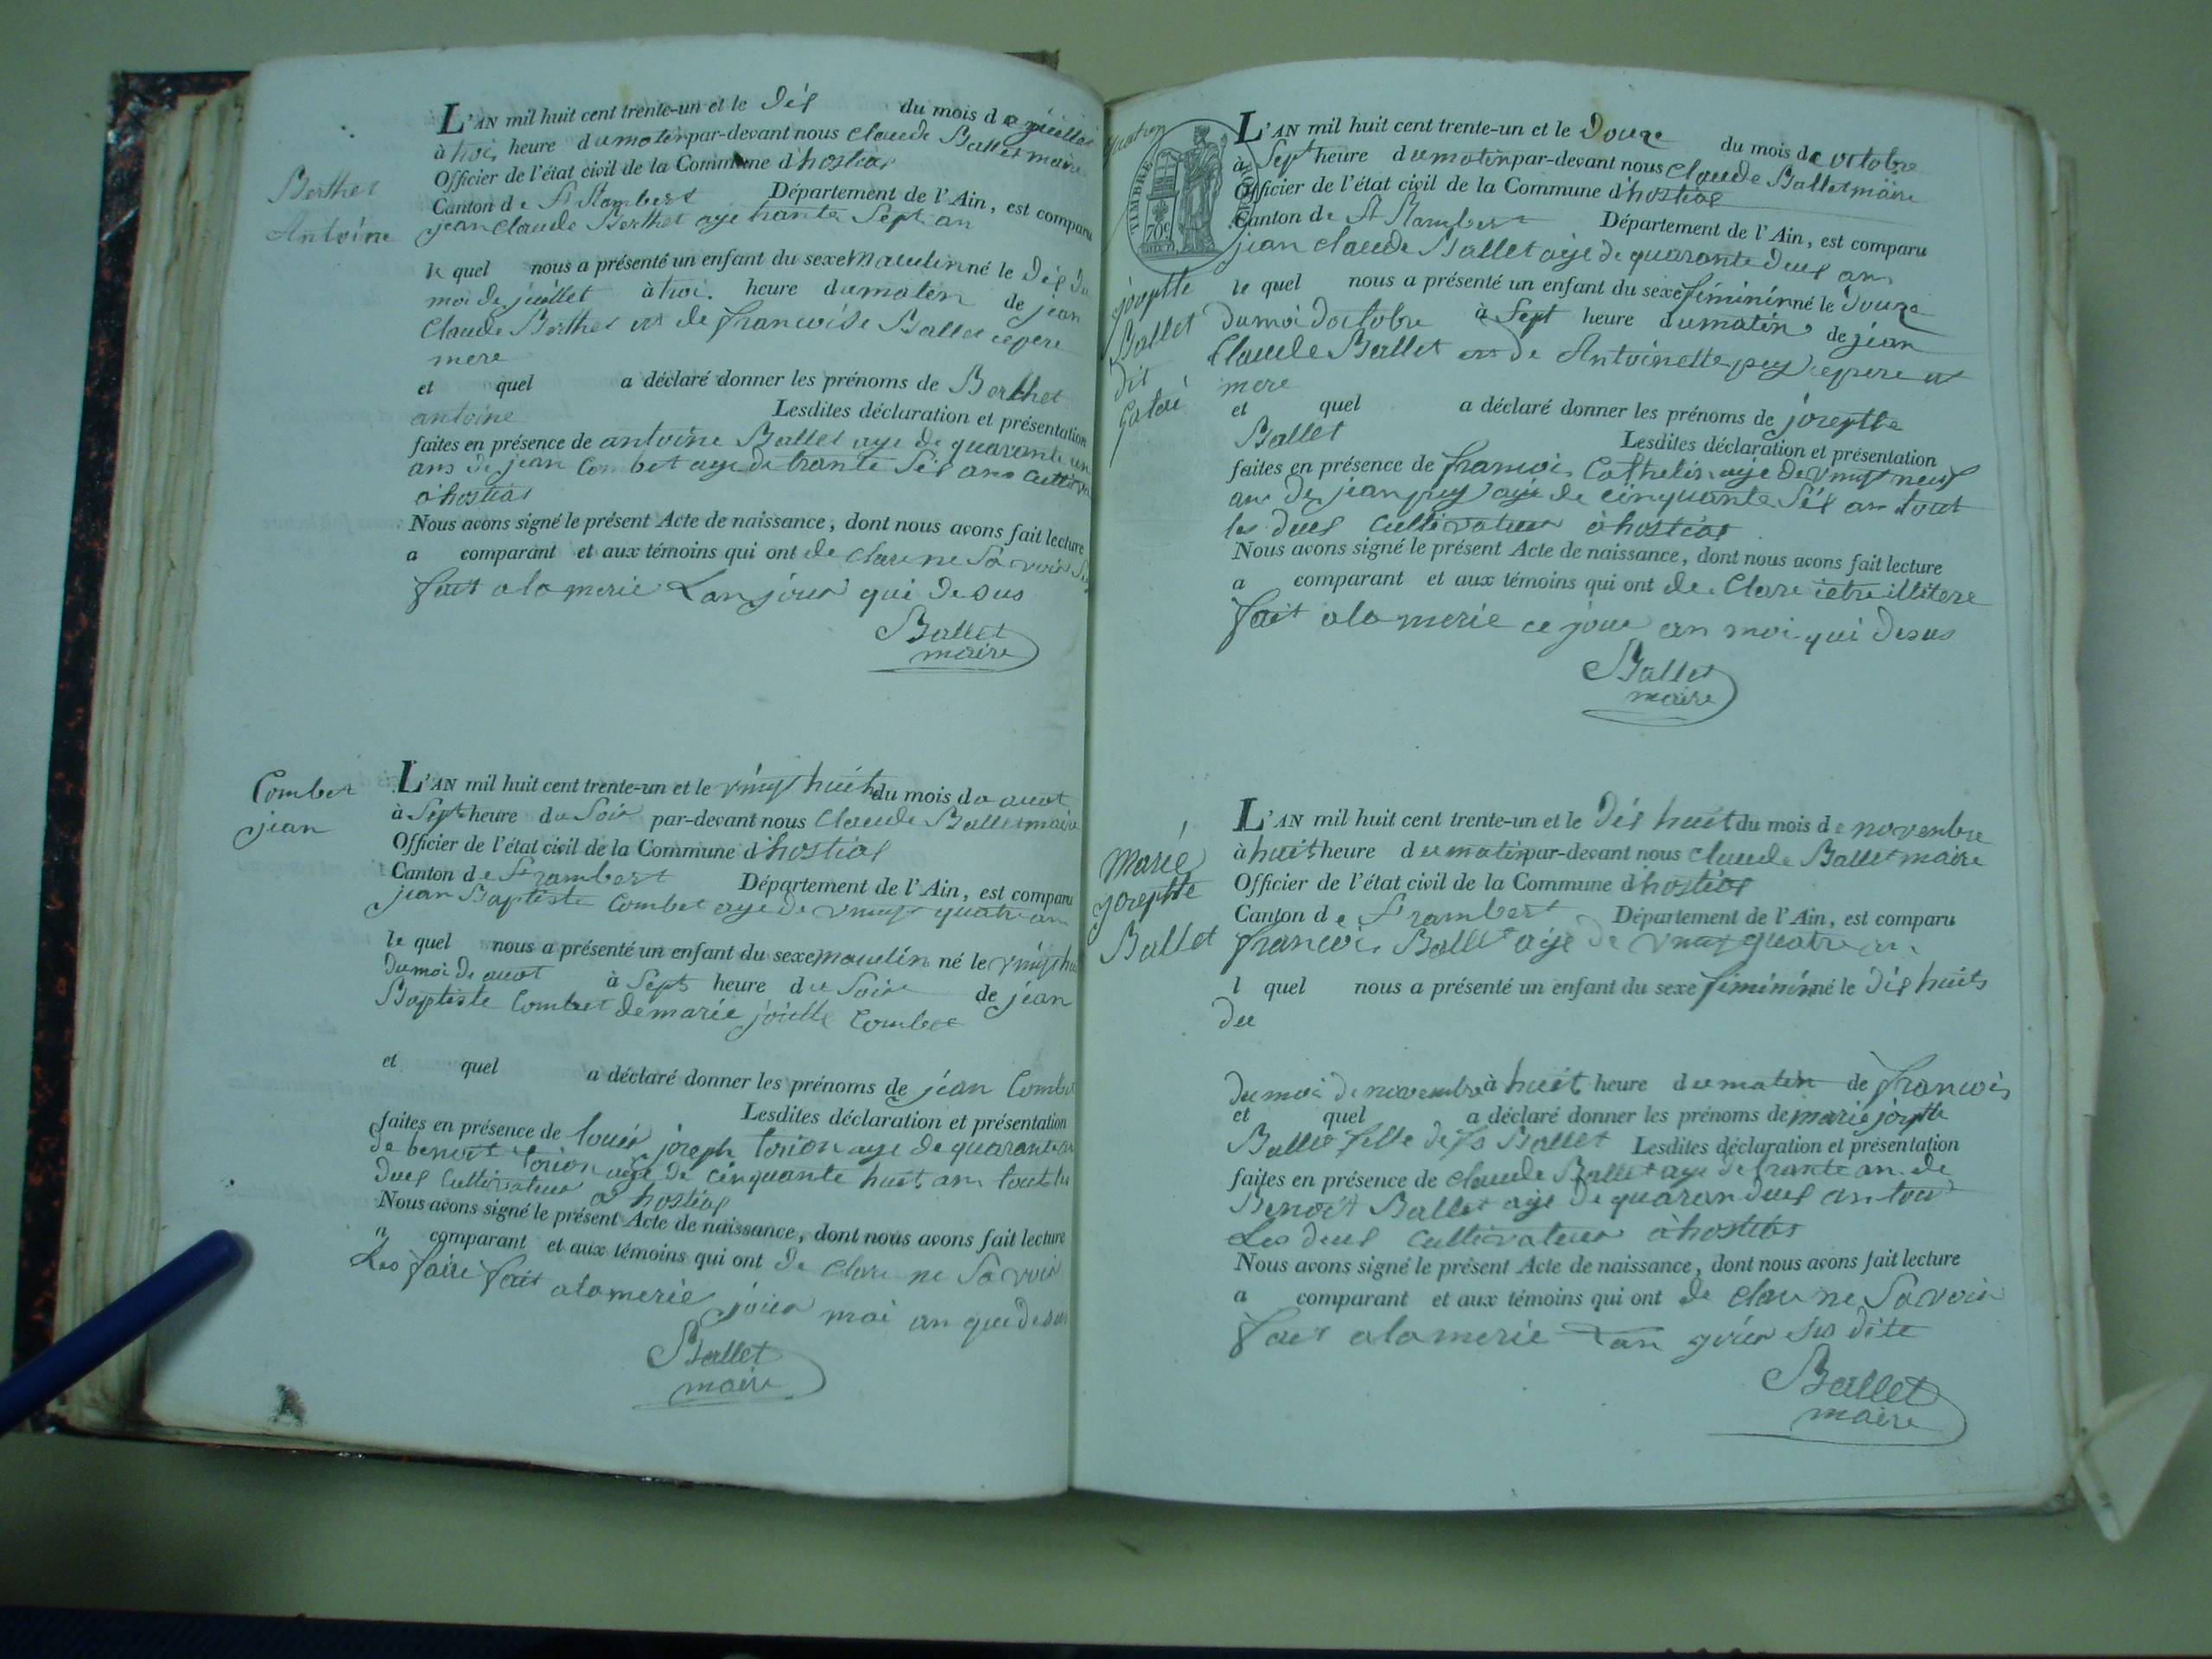 Berthet
Antoine
L'AN mil huit cent trente-un et le dis du mois de juillet
à troi heure du matin par-devant nous Claude Ballet maire
Officier de l'état civil de la Commune d'hostias
Canton de St Rambert Département de l'Ain, est comparu
jean Claude Berthet age trante Sept an
le quel nous a présenté un enfant du sexe masculin né le dis du
moi de juillet à troi heure du maten de jean
Claude Berthet et de francoise Ballet pere
mere
et quel a déclaré donner les prénoms de Berthet
antoine Lesdites déclaration et présentation
faites en présence de antoine Ballet age de quarante un
ans de jean Combet age de trante Sis ans
à hostias
Nous avons signé le présent Acte de naissance, dont nous avons fait lecture
a comparant et aux témoins qui ont de clare ne Savoir
fait a la merie Lan jour qui desus
Ballet
maire
Combet
jean
L'AN mil huit cent trente-un et le vingt huit du mois de auot
à Sept heure du Soir par-devant nous Claude Ballet maire
Officier de l'état civil de la Commune d'hostias
Canton de St rambert Département de l'Ain, est comparu
jean Baptiste Combet age de vingt quatre an
le quel nous a présenté un enfant du sexe masculin né le vingt
du moi de auot à Sept heure du Soire de jean
Baptiste Combet de marie Combet
et quel a déclaré donner les prénoms de jean
Lesdites déclaration et présentation
faites en présence de louis joseph age de quarante
de benoit age de cinquante huit an tout les
deus Cultivateur a hostias
Nous avons signé le présent Acte de naissance, dont nous avons fait lecture
a comparant et aux témoins qui ont de clare ne Savoir
Les faire fait a la merie jour moi an qui desus
Ballet
maire
TIMBRE
70c
josepthe
Ballet
dit
L'AN mil huit cent trente-un et le Douze du mois de octobre
à Sept heure du matin par-devant nous Claude Ballet maire
Officier de l'état civil de la Commune d'hostias
Canton de St Rambert Département de l'Ain, est comparu
jean Claude Ballet age de quarante deus an
le quel nous a présenté un enfant du sexe féminin né le Douze
du moi doctobre à Sept heure du matin de jean
Claude Ballet et de Antoinette pey pere et
mere
et quel a déclaré donner les prénoms de josepthe
Ballet Lesdites déclaration et présentation
faites en présence de francois Cathelin age de vingt neuf
an de jean pey age de cinquante Sis an tout
les deus Cultivateur à hostias
Nous avons signé le présent Acte de naissance, dont nous avons fait lecture
a comparant et aux témoins qui ont de Clare illitere
fait a la merie ce jour an moi qui desus
Ballet
maire
Marie
josepthe
Ballet
L'AN mil huit cent trente-un et le Dis huit du mois de novembre
à huit heure du matin par-devant nous Claude Ballet maire
Officier de l'état civil de la Commune d'hostias
Canton de St rambert Département de l'Ain, est comparu
francois Ballet age de vingt quatre an
l quel nous a présenté un enfant du sexe féminin né le Dis huits
du
du moi de novembre à huit heure du maten de francois
et quel a déclaré donner les prénoms de marie josepthe
Ballet fille de fs Ballet Lesdites déclaration et présentation
faites en présence de Claude Ballet age de trante an de
Benoit Ballet age de quaran deus an tout
Les deus Cultivateur à hostias
Nous avons signé le présent Acte de naissance, dont nous avons fait lecture
a comparant et aux témoins qui ont de clare ne Savoir
fait a la merie Lan jour Sus dite
Ballet
maire